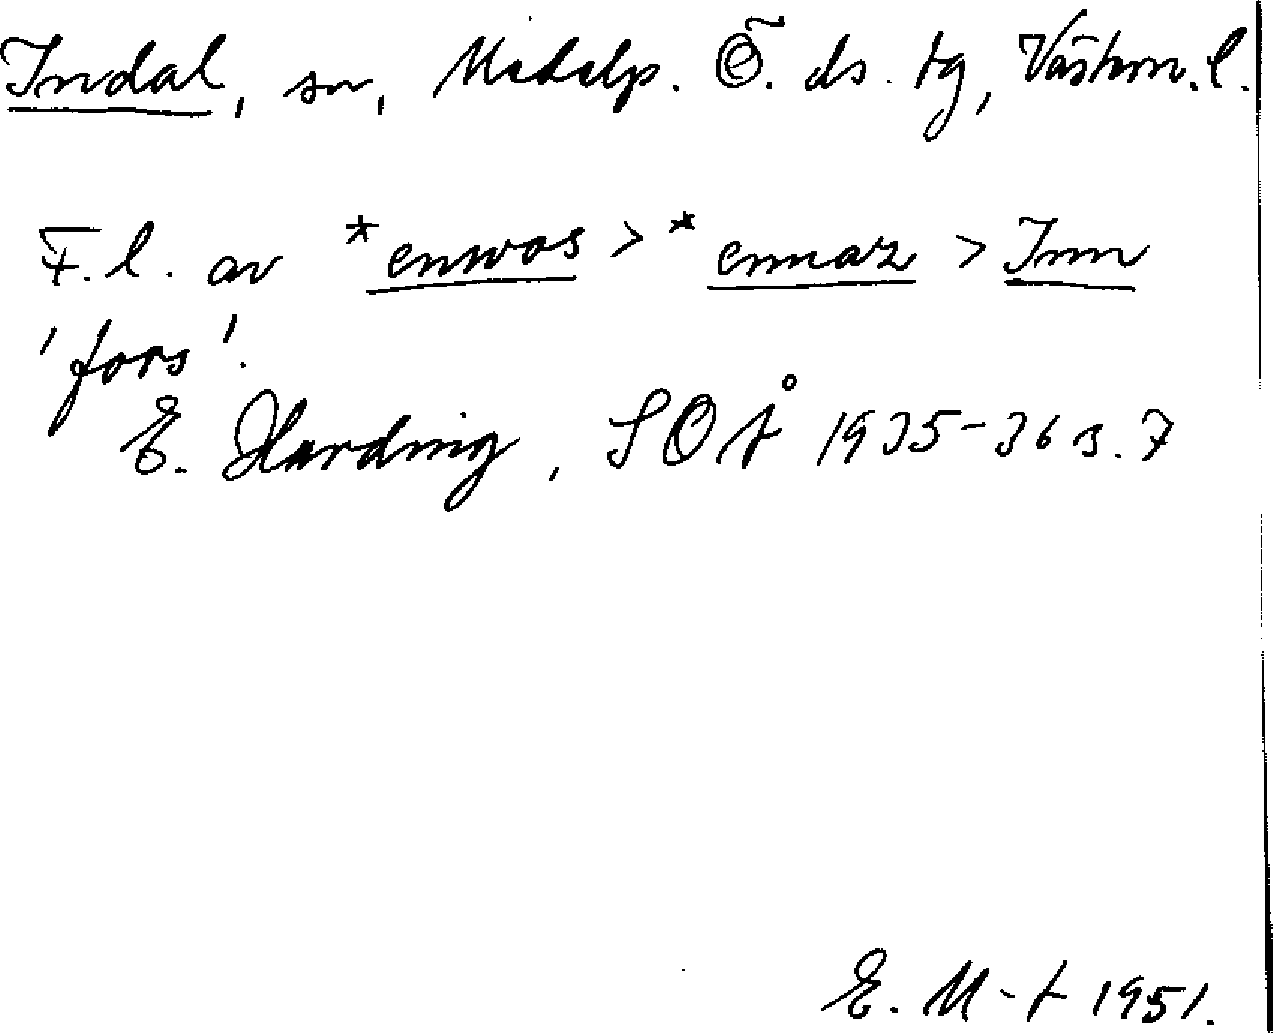 Indal, sn, Medelp. Ö. ds. tg, Västern. l.
F. l. av *enwos > *ennaz > Inn
'fors'.
E. Harding, SOÅ 1935-36 s. 7
E. M-t 1951.